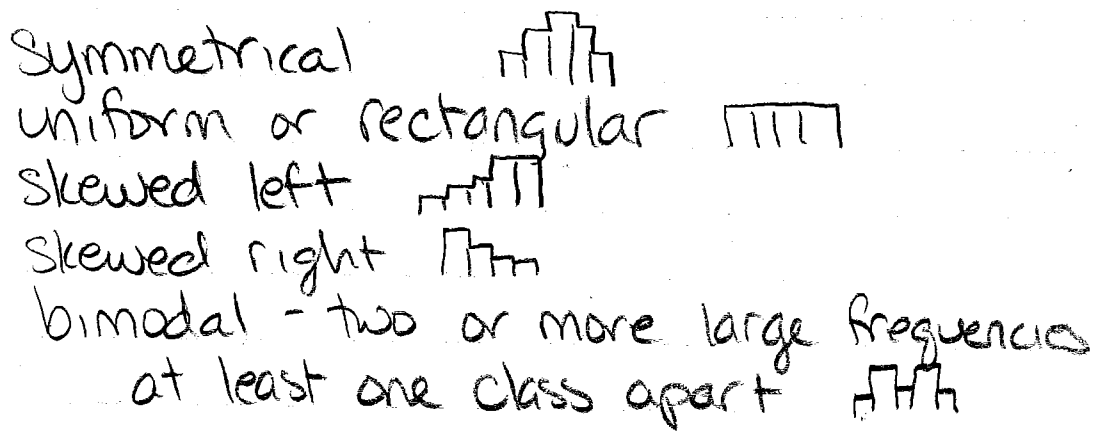 symmetrical
uniform or rectangular
skewed left
skewed right
bimodal - two or more large frequencies
at least one class apart